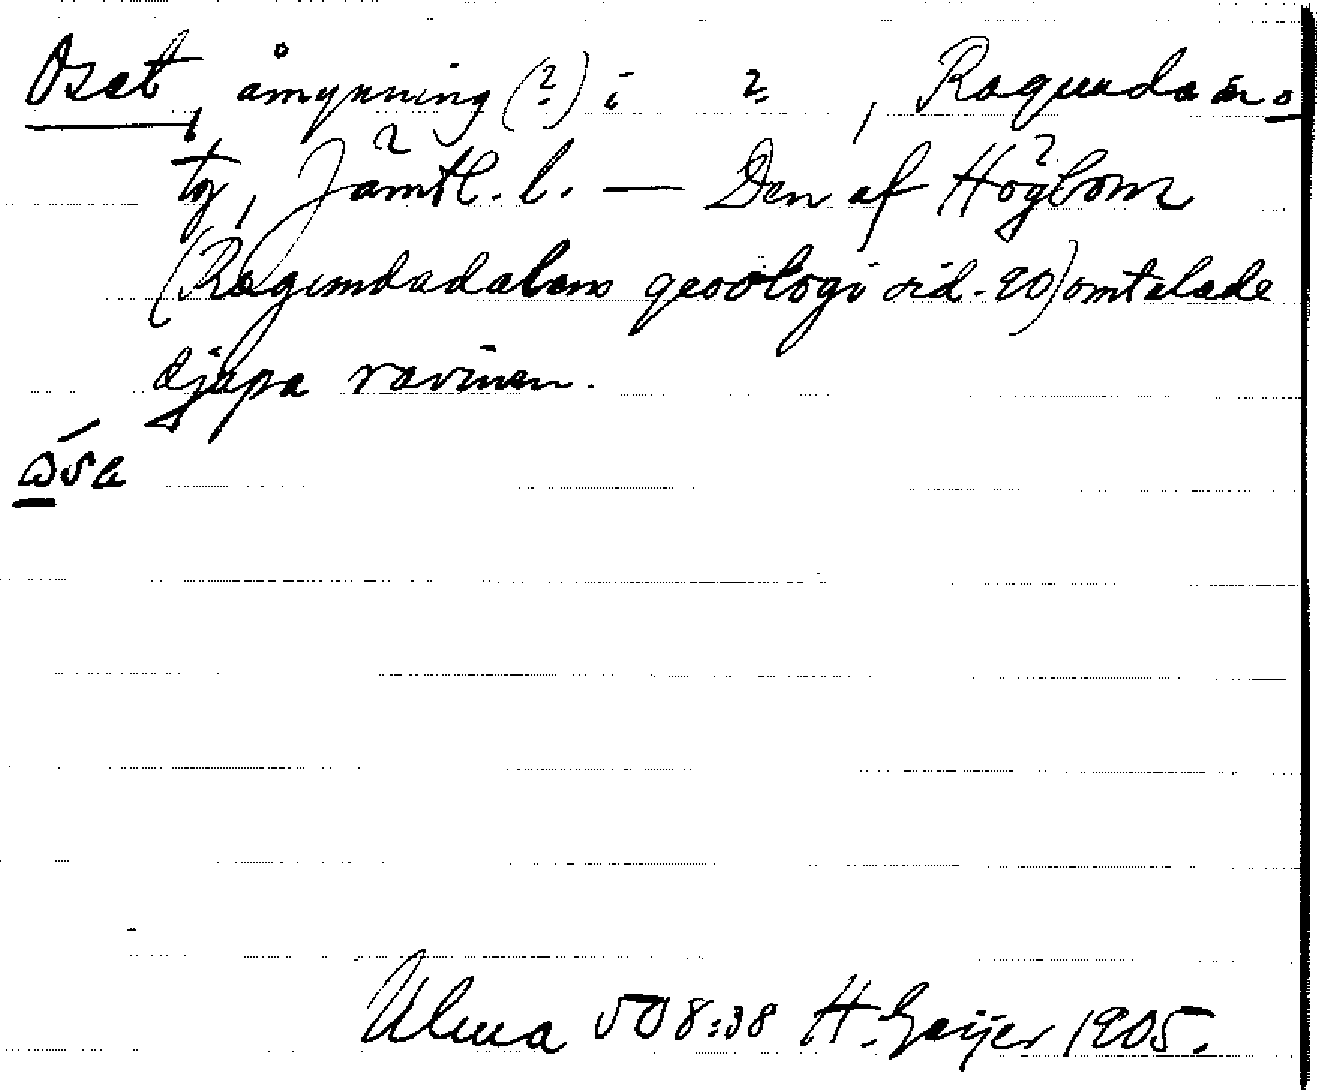 Oset, åmynning (?) i ? , Ragunda sn o
tg, Jämtl. l. — Den af Högbom
(Ragundadalens geologi sid. 90) omtalade
djupa ravinen.
Ulma 508:38 H. Geijer 1905.